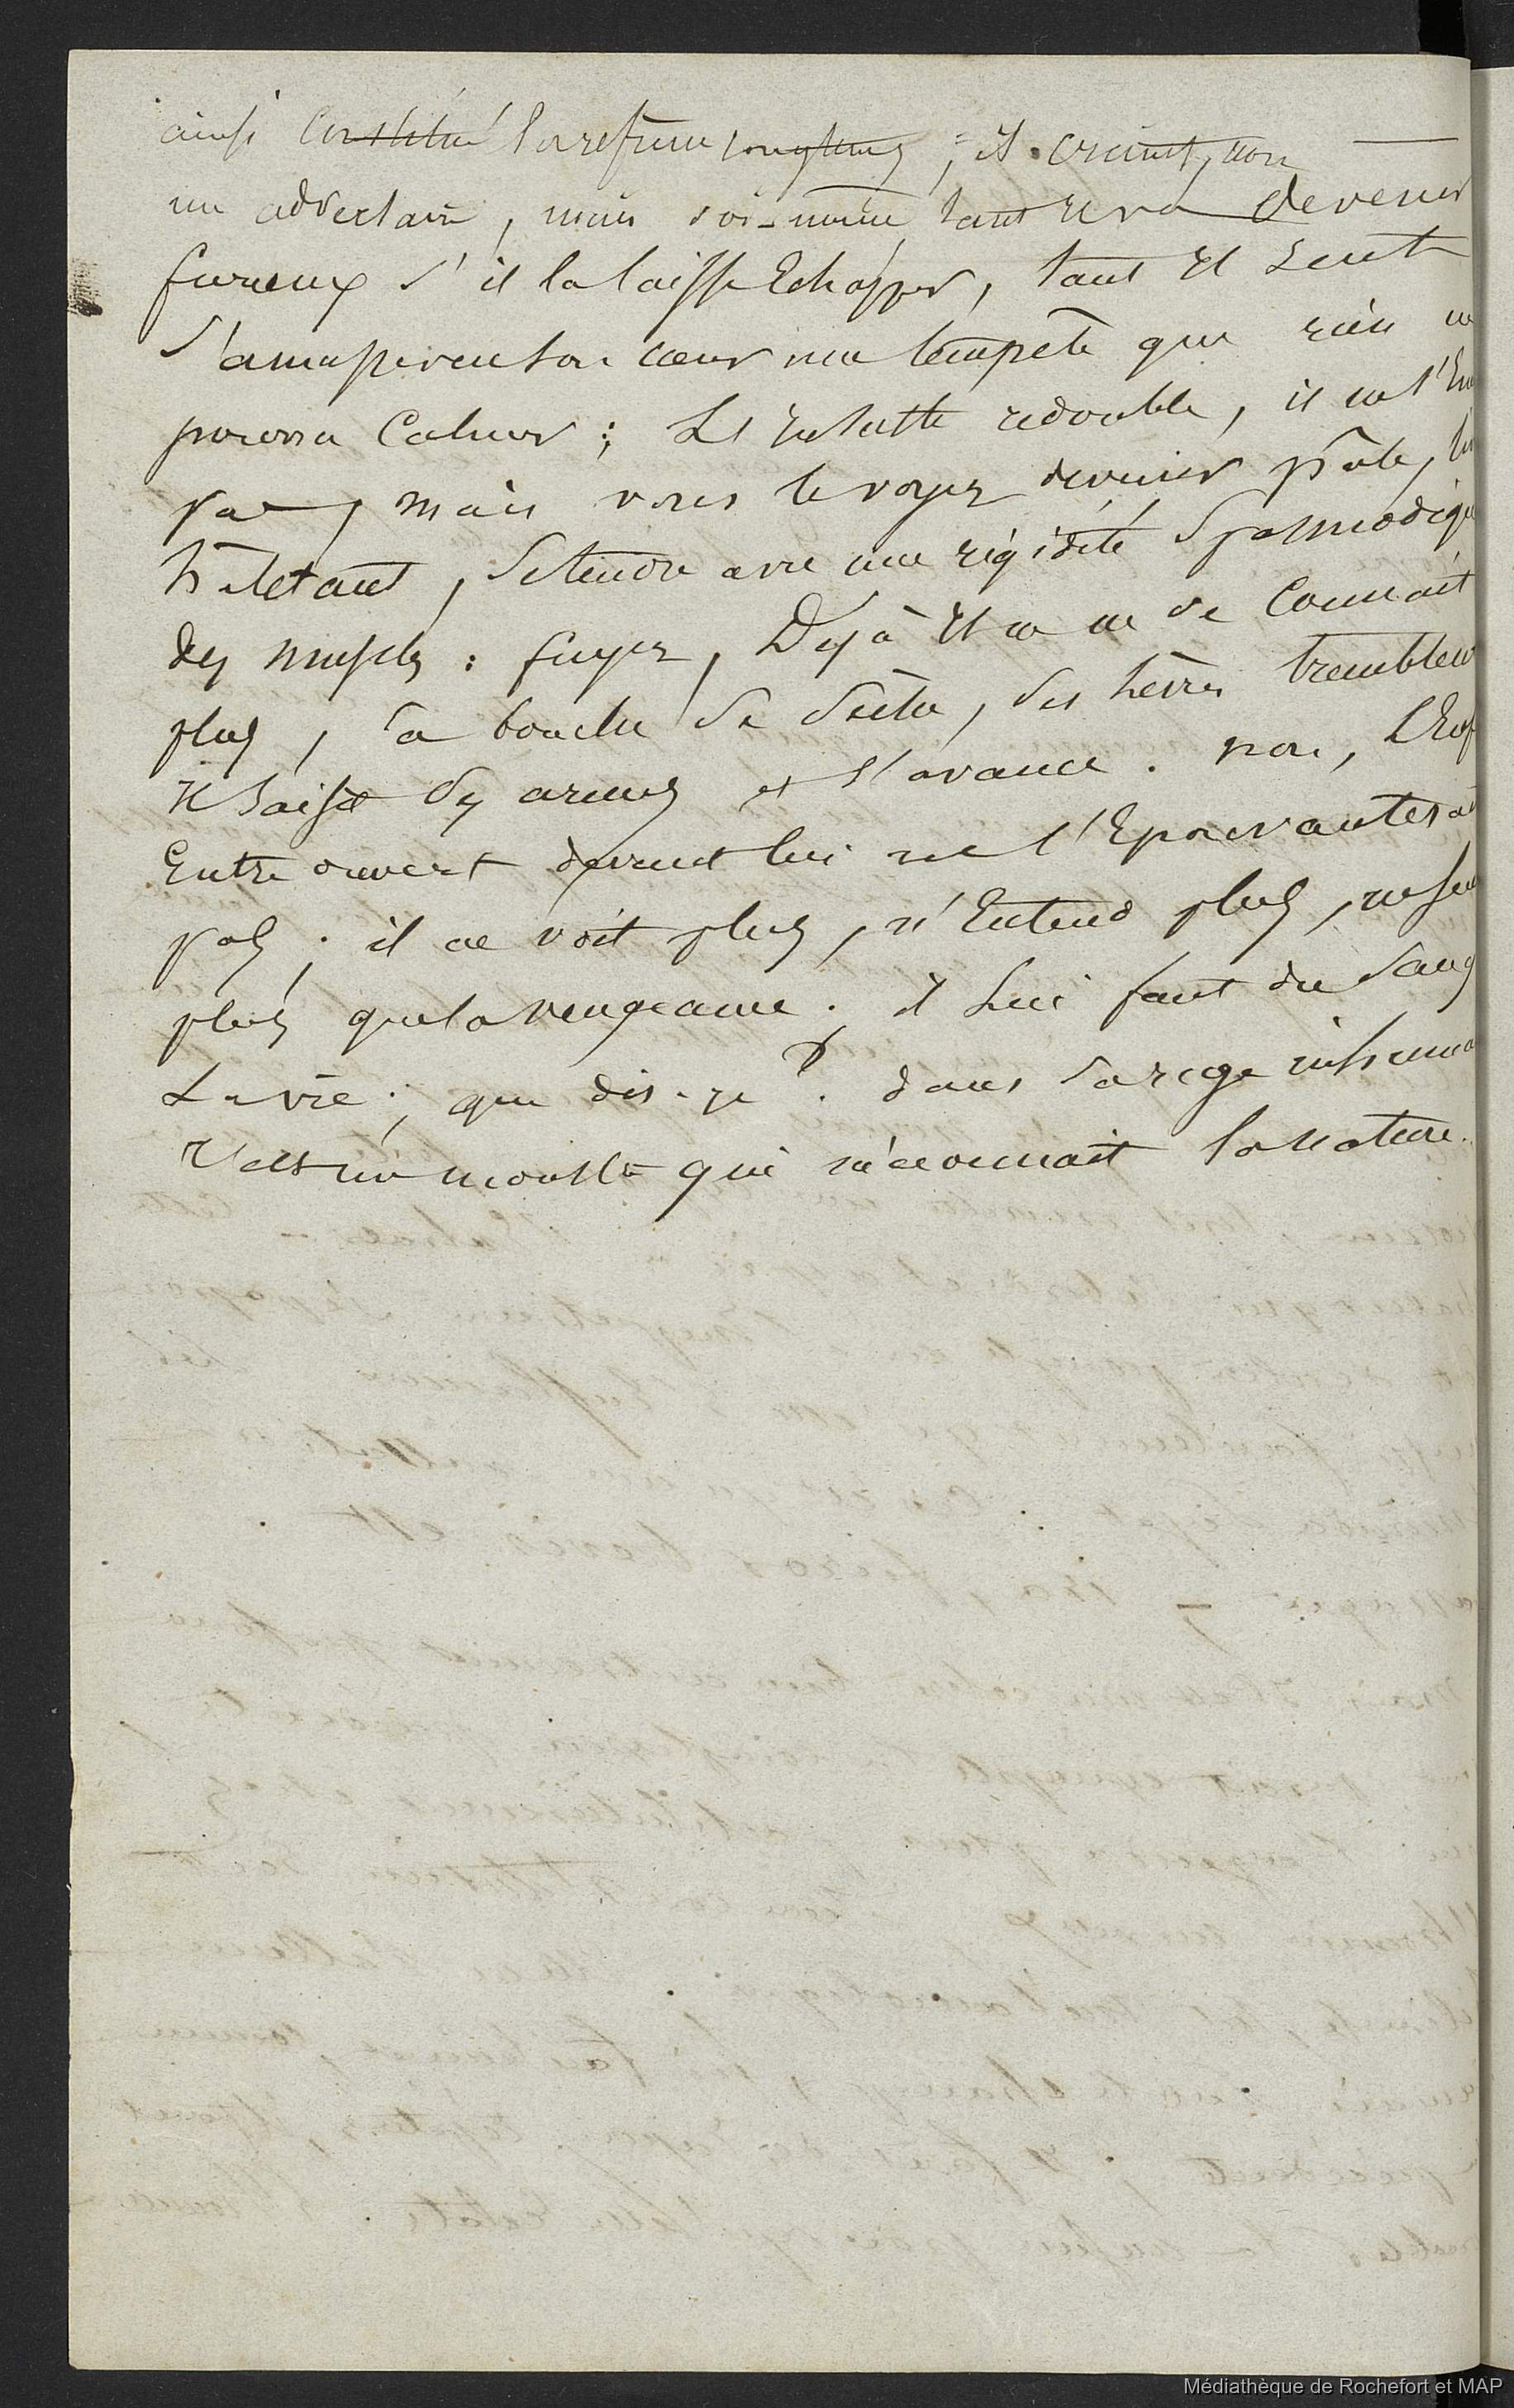 ainsi constitué la refrène longtemps ; il craint, non
un adversaire, mais soi-même, tant il va devenir
furieux s'il la laisse Echapper, tant il sent
s'amasser en son cœur une tempête que rien ne
pourra Calmer ; L'insulte redouble, il ne l'En
pas, mais vous le voyez devenir pâle,
hâletant, se tendre avec une rigidité spasmodique
des muscles : fuyez, Déjà il ne se Connait
plus, sa bouche se sèche, ses lèvres tremblent
il saisit des armes et s'avance. non,
Entre ouvert devant lui ne l'Epouvanterait
pas ; il ne voit plus, n'Entend plus, ne sent
plus que la vengeance ; il Lui faut du Sang
La vie ; que dis-je ? dans sa rage inhumaine
c'est un monstre qui méconnait la nature.
Médiathèque de Rochefort et MAP